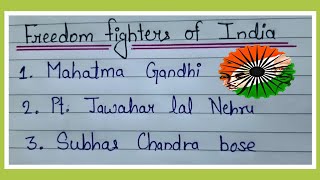 Freedom fighters of India
1. Mahatma Gandhi
2. Pt. Jawahar lal Nehru
3. Subhas Chandra bose